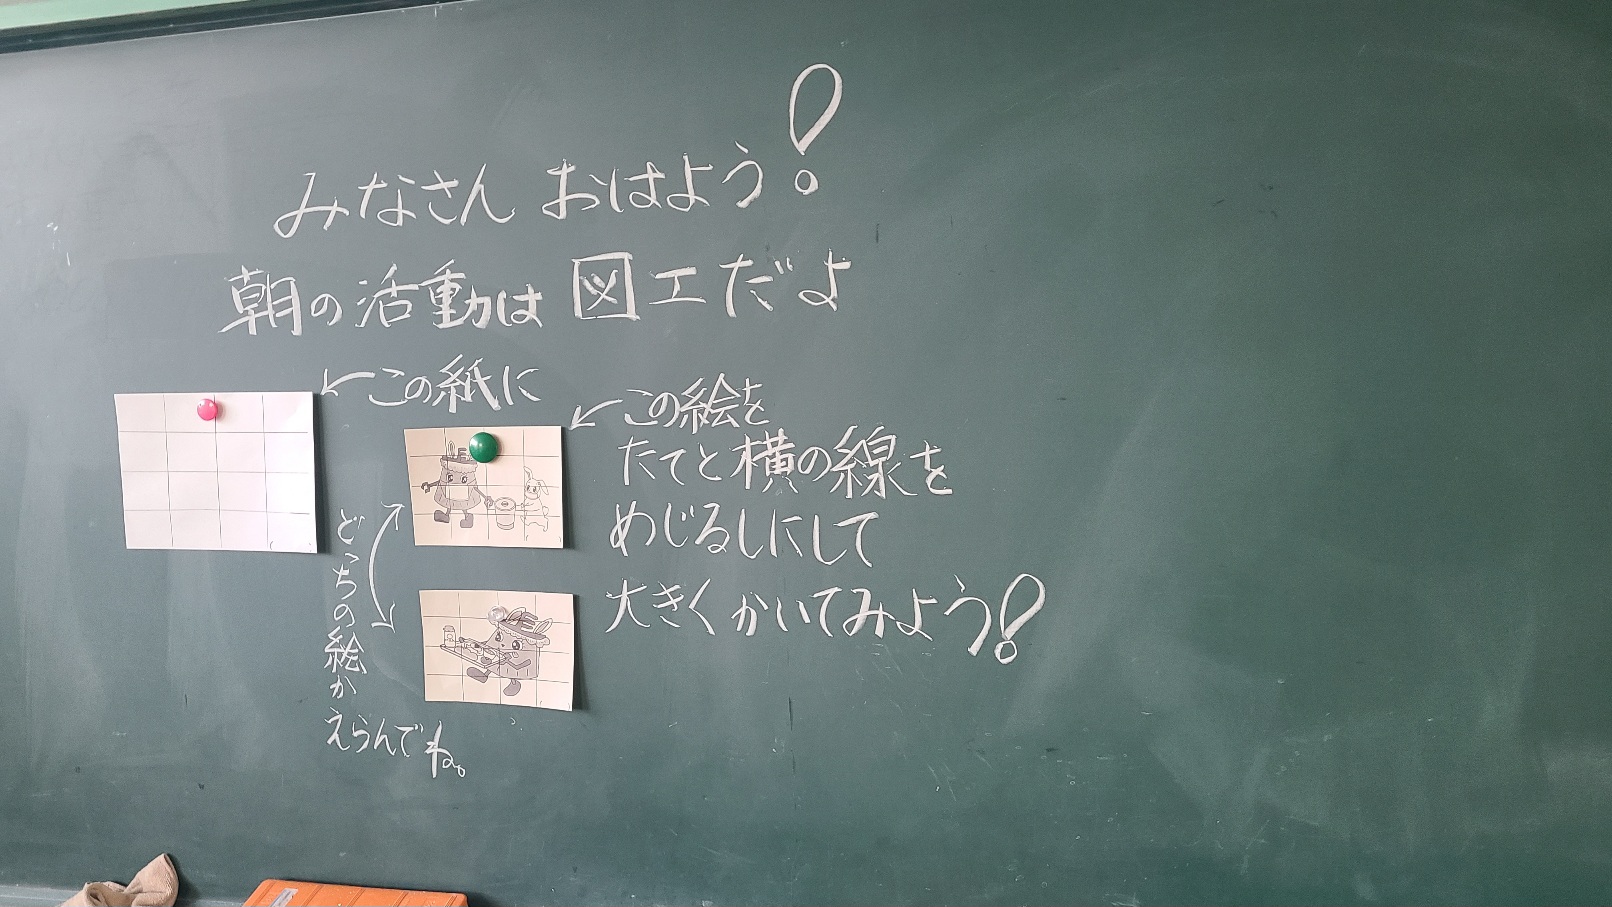 みなさん おはよう!
朝の活動は 図工だよ
←この紙に
←この絵を
たてと横の線を
めじるしにして
大きくかいてみよう!
どっちの絵か
えらんでね。